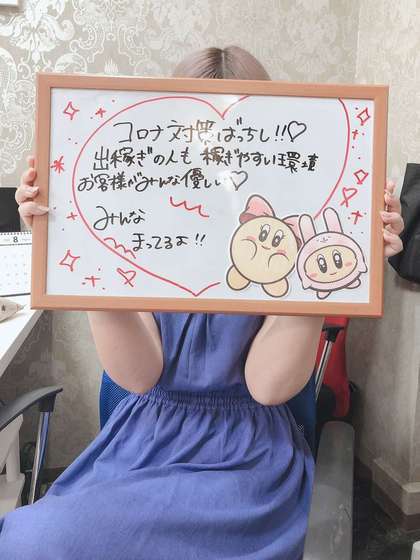 コロナ対策ばっちし!!♡
出稼ぎの人も 稼ぎやすい環境
お客様がみんな優しい♡
みんな
まってるよ!!
8